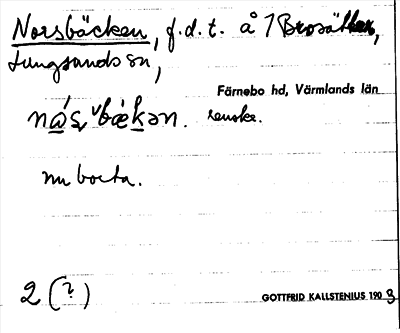 Norsbäcken, f.d.t. å 7 Brosätter,
Lungsunds sn,
Färnebo hd, Värmlands län
ná̱s̨ ˅bǽḵən. svenska.
nu borta.
2 (?)
GOTTFRID KALLSTENIUS 1903